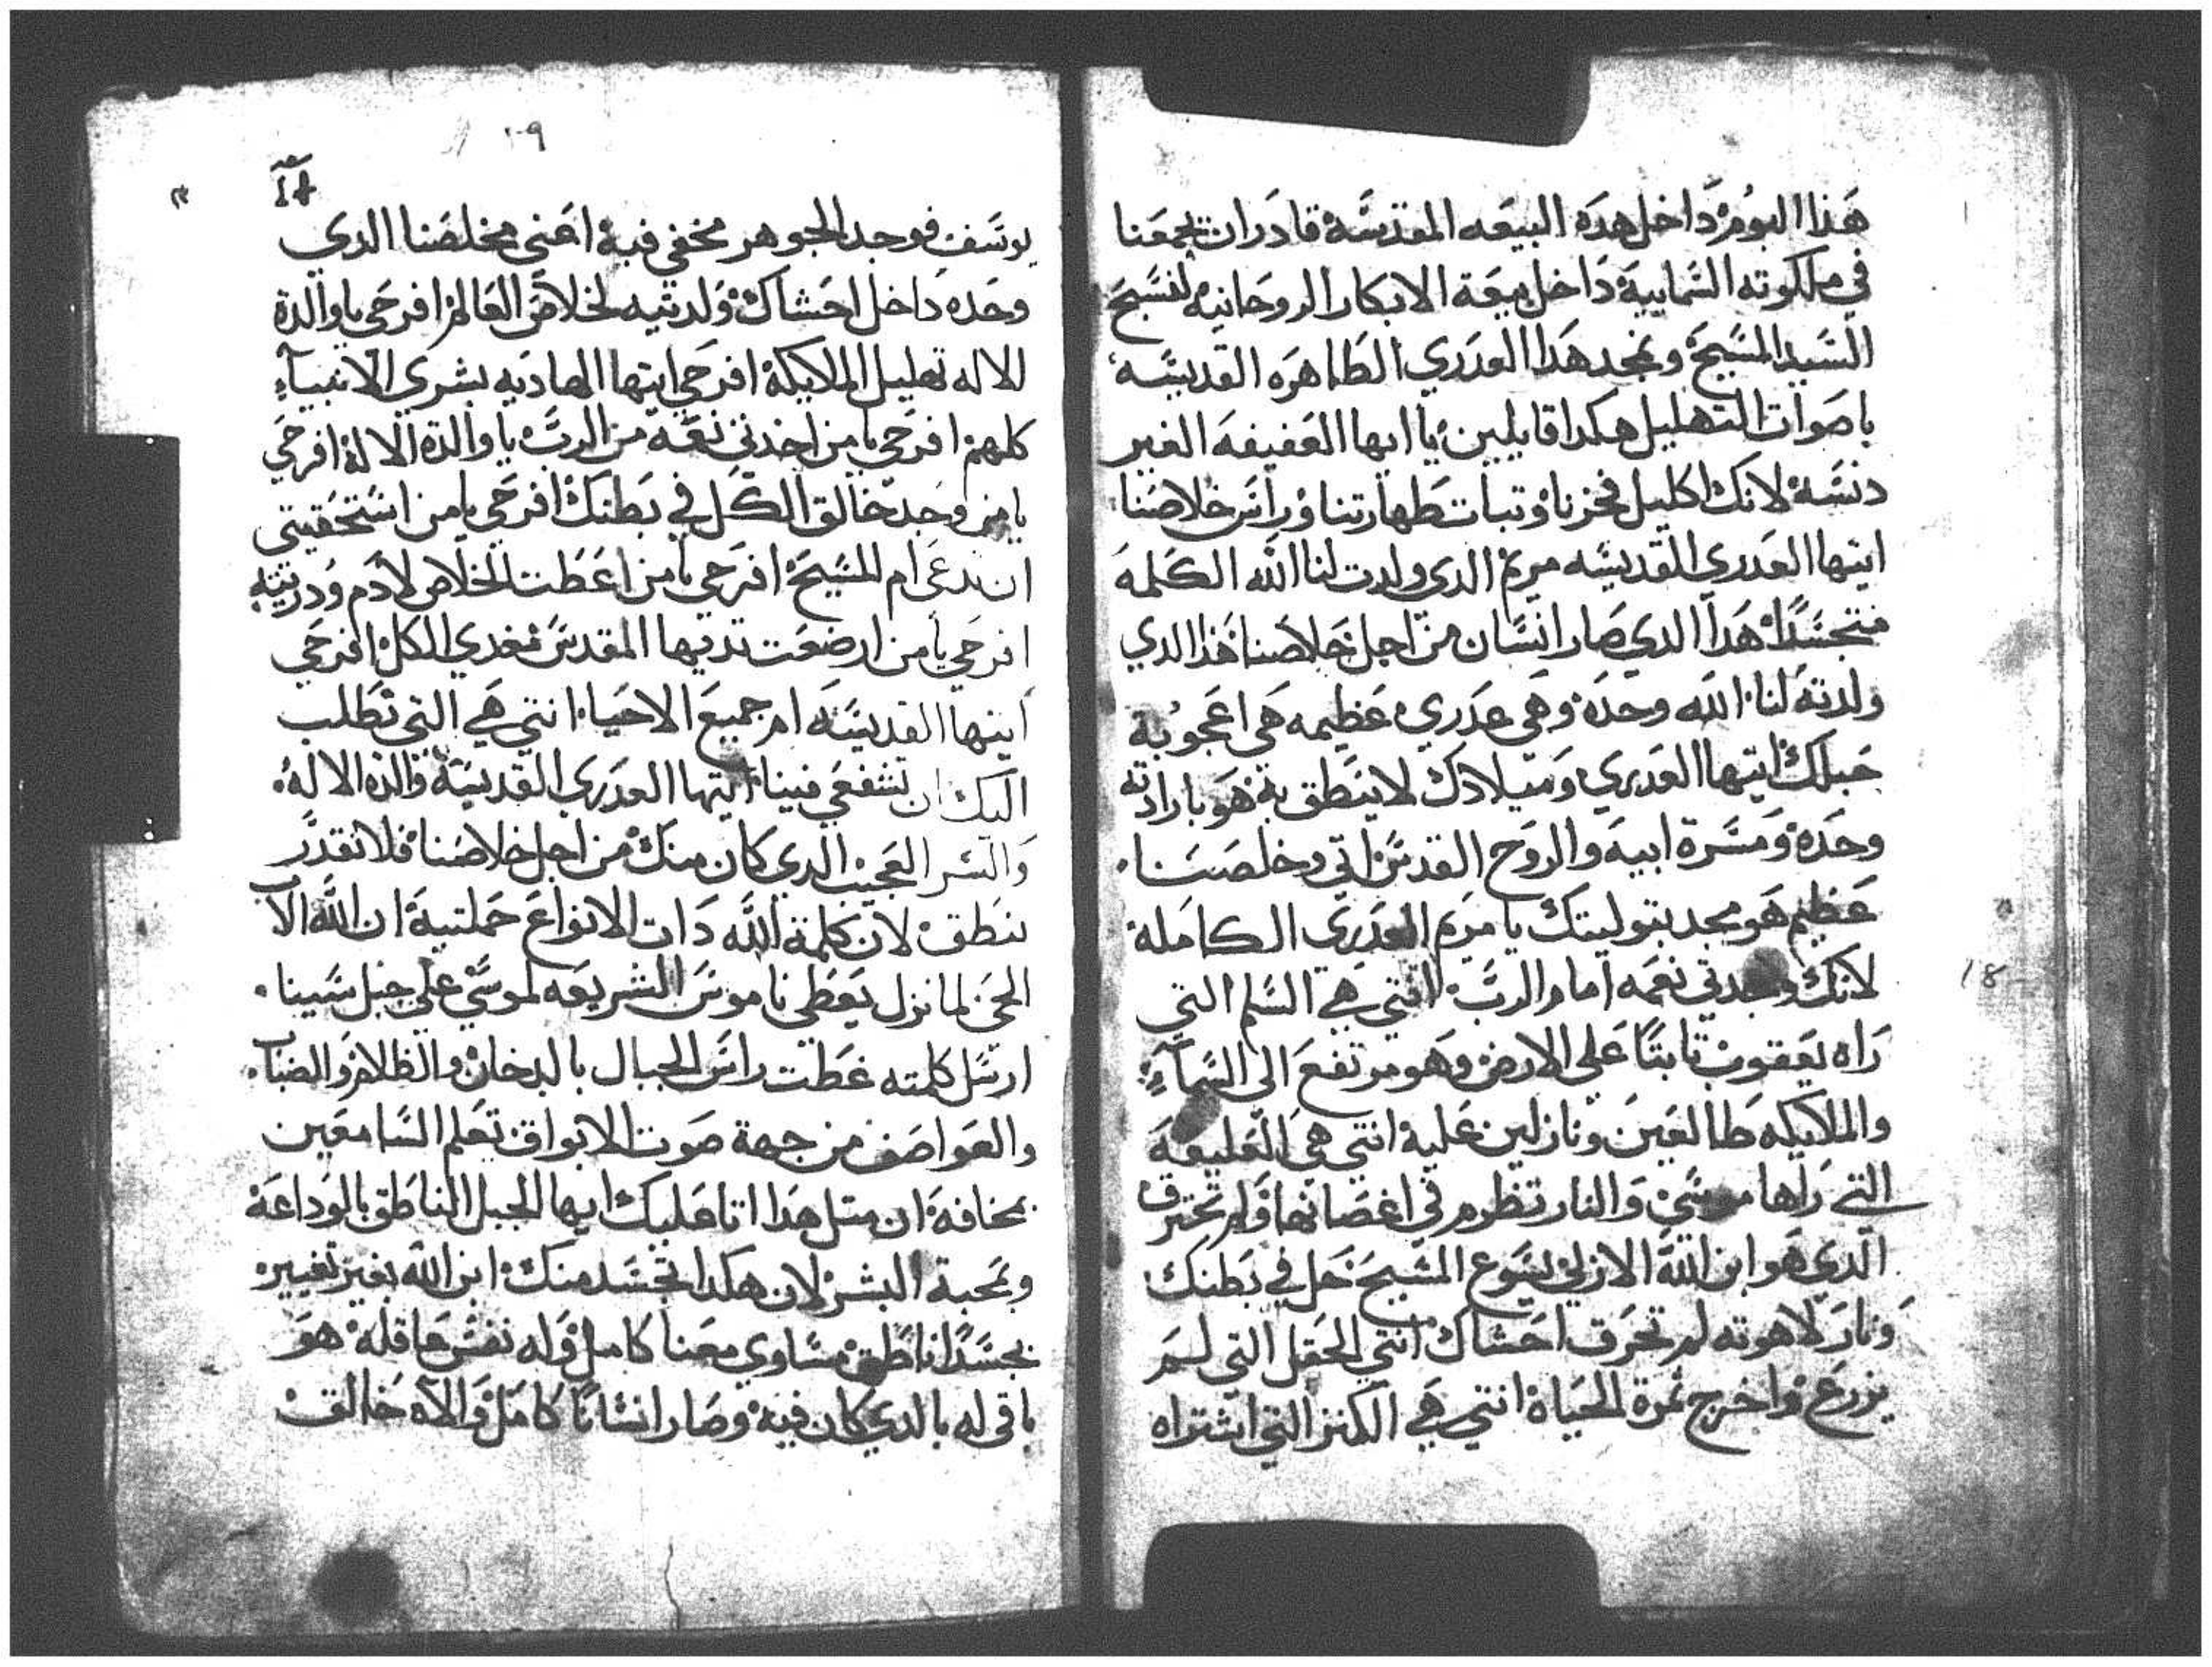 هذا اليوم داخل هده البيعه المقدسة قادر ان يجمعنا
في ملكوته السمايية داخل بيعة الابكار الروحانية لنسبح
السيد المسيح ونمجد هدا العدري الطاهره القديسه
باصوات التهليل هكدا قايلين يا ايها العفيفه الغير
دنسة لانك اكليل فخرنا وتبات طهارتنا وراس خلاصنا
ايتها العدري القديسه مريم الدي ولدت لنا الله الكلمه
متجسدا هدا الدي صار انسان من اجل خلاصنا هدا الدي
ولدته لنا الله وحده وهي عدري عظيمه هي اعجوبة
حبلك ايتها العدري وميلادك لا ينطق به هو بارادته
وحده ومسرة ابيه والروح القدس اتي وخلصنا
عظيم هو مجد بتوليتك يا مريم العدري الكاملة
لانك وجدتي نعمه امام الرب انتي هي السلم التي
راه يعقوب تابتا علي الارض وهو مرتفع الى السماء
والملايكه طالعين ونازلين علية انتي هي العليقه
التي راها موسي والنار تظرم في اغصانها ولم تحترق
الدي هو ابن الله الازلي يسوع المسيح حل في بطنك
ونار لاهوته لم تحرق احشاك انتي الحقل التي لم
يزرع واخرج تمرة الحياة انتي هي الكنز التي اشتراه
١٠٩
يوسف فوجد الجوهر مخفي فية اعني مخلصنا الدي
وحده داخل احشاك ولدتيه لخلاص العالم افرحي يا والدة
الاله تهليل الملايكة افرحي ايتها الهاديه بشري الانبياء
كلهم افرحي يا من اخدتي نعمه من الرب يا والدة الالة افرحي
يا من وجد خالق الكل في بطنك افرحي يا من استحقيتي
ان تدعي ام المسيح افرحي يا من اعطت الخلاص لادم ودريته
افرحي يا من ارضعت تدييها المقدس مغدي الكل افرحي
ايتها القديسه ام جميع الاحياء انتي هي التي نطلب
اليك ان تشفعي فينا ايتها العدري القديسة والده الالة
والسر العجيب الدي كان منك من اجل خلاصنا فلا نقدر
ننطق لان كلمة الله دات الانواع حملتيه ان الله الاب
الحي لما نزل يعطي ناموس الشريعه لموسي علي جبل سينا
ارسل كلمته غطت راس الجبال بالدخان والظلام والضباب
والعواصف من جهة صوت الابواق تعلم السامعين
بمخافة ان متل هدا اتا عليك ايها الجبل الناطق بالوداعة
وبمحبة البشر لان هكدا تجسد منك ابن الله بغير تغيير
بجسدا ناطق مساوي معنا كامل وله نفس عاقلة هو
باقي له بالدي كان فية وصار انسانا كامل والاه خالق